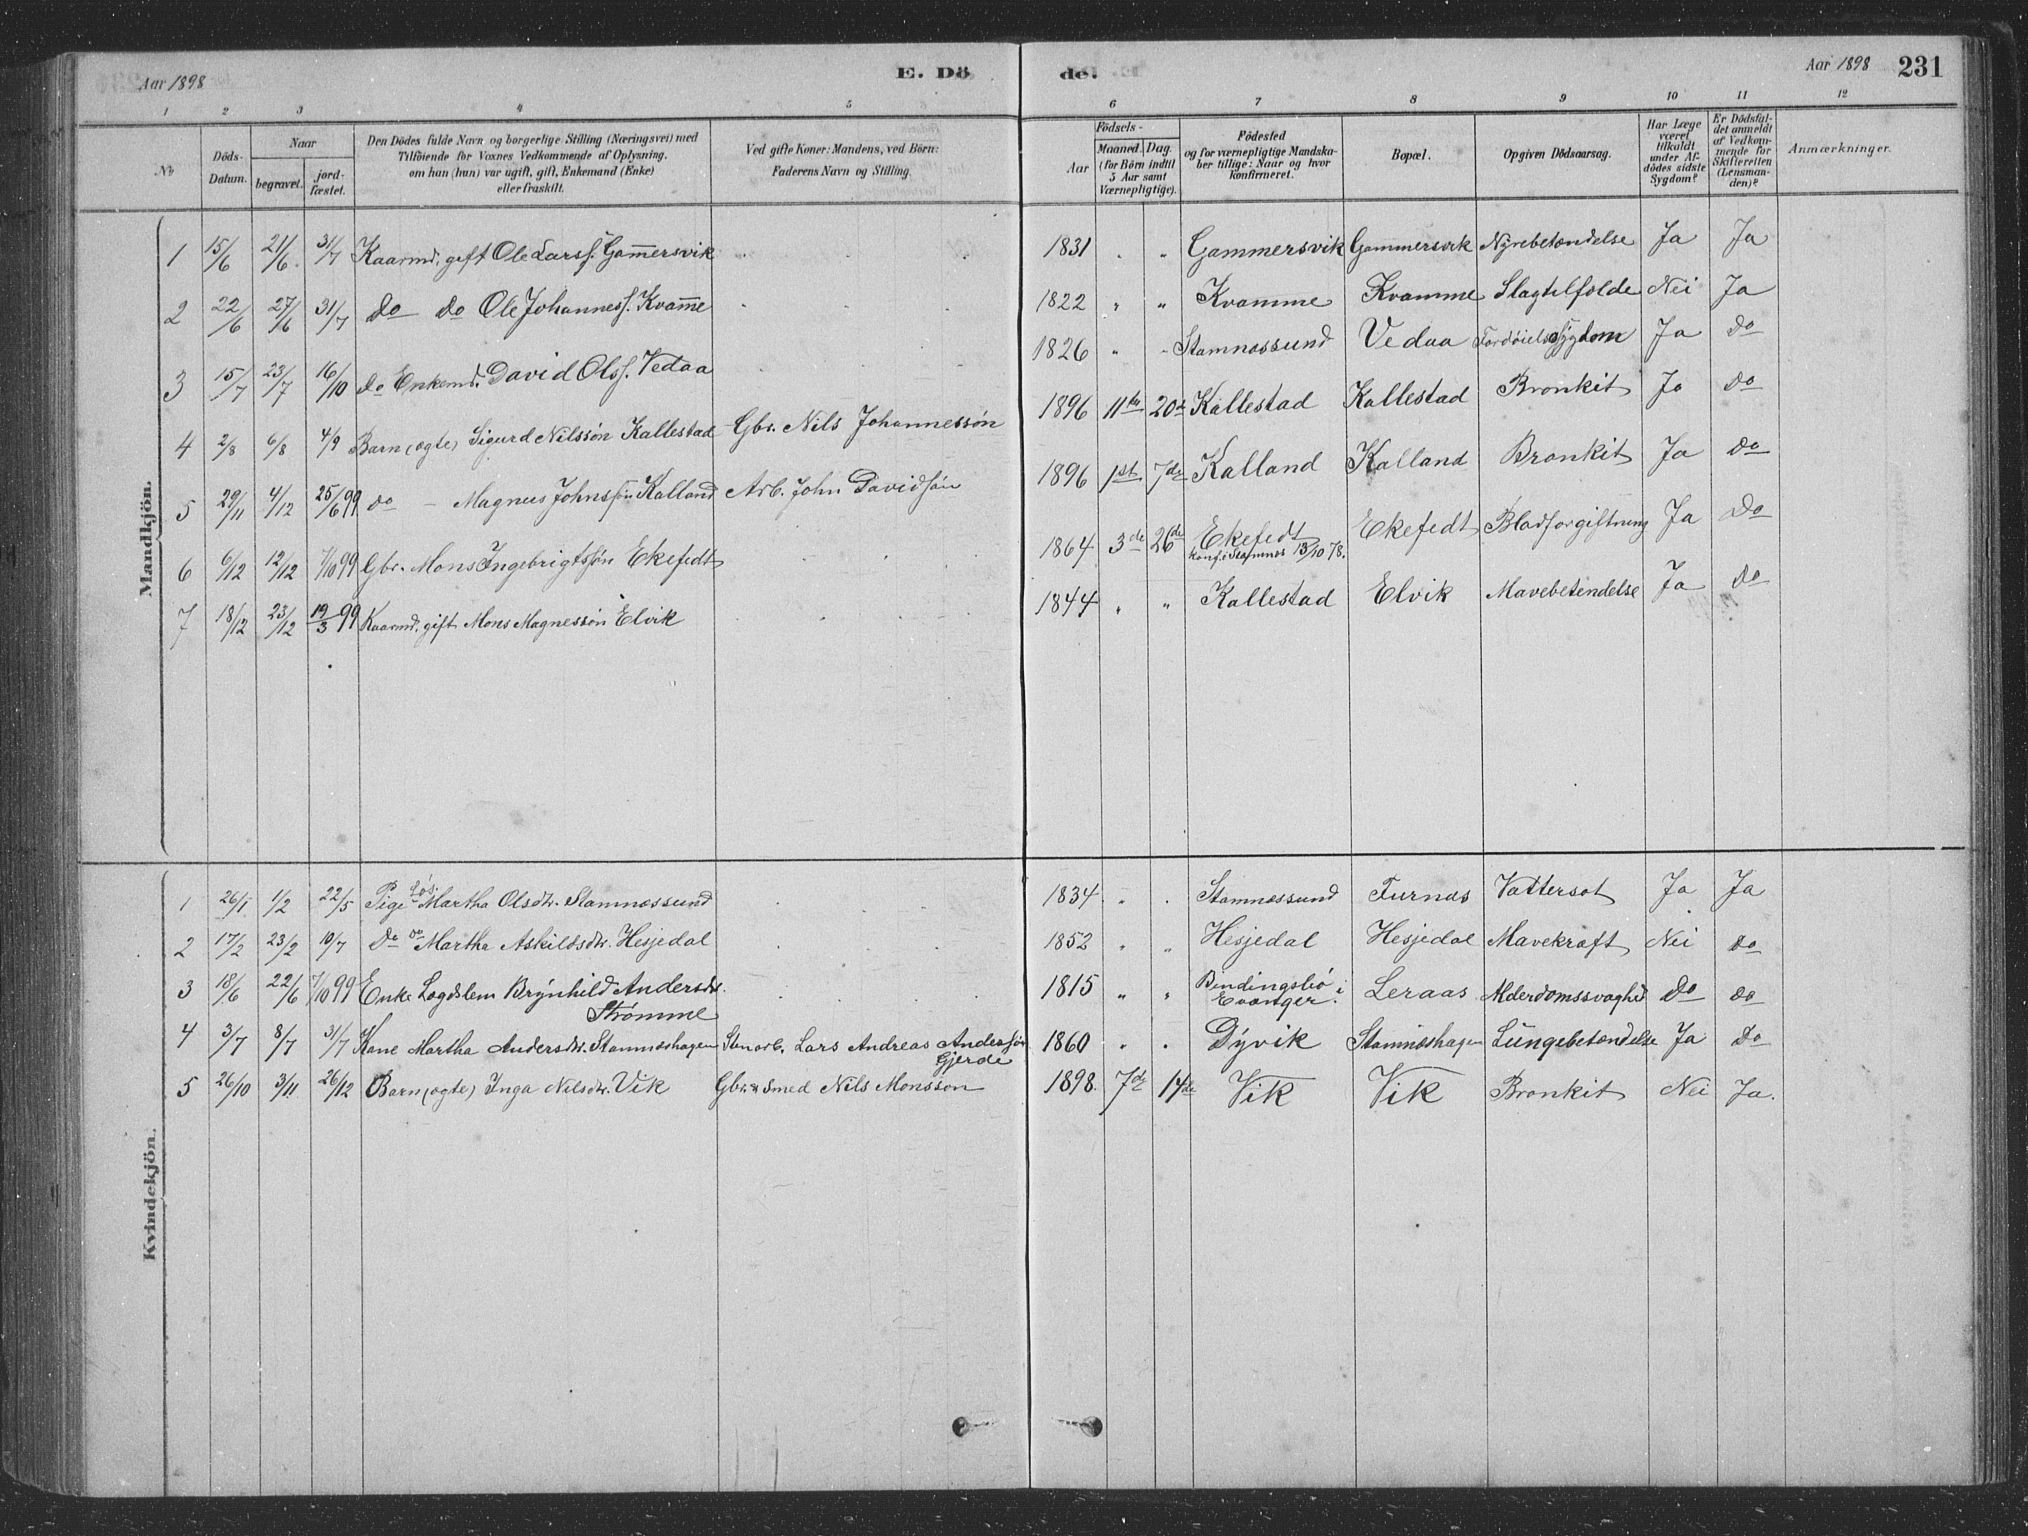 Aar 1898 E. Dö de. Aar 1898 231
1 2 3 4 5 6 7 8 9 10 11 12
No
Döds-Datum.
Naar
begravet.
jord-fæstet.
Den Dödes fulde Navn og borgerlige Stilling (Næringsvei) med
Tilföiende for Voxnes Vedkommende af Oplysning,
om han (hun) var ugift, gift, Enkemand (Enke)
eller fraskilt.
Ved gifte Koner: Mandens, ved Börn:
Faderens Navn og Stilling.
Födsels-
Aar
Maaned. Dag.
(for Börn indtil
5 Aar samt
Værnepligtige).
Födested
og for værnepligtige Mandska-
ber tillige: Naar og hvor
konfirmeret.
Bopæl.
Opgiven Dödsaarsag.
Har Læge
været
tilkaldt
under Af-
dödes sidste
Sygdom?
Er Dödsfal-
det anmeldt
af Vedkom-
mende for
Skifteretten
(Lensman-
den)?
Anmærkninger.
Mandkjön.
1 15/6 21/6 31/7 Kaarmd. gift Ole Larss. Gammersvik 1831 " " Gammersvik Gammersvik Nyrebetændelse Ja Ja
2 22/6 27/6 31/7 do do Ole Johanness. Kvamme 1822 " " Kvamme Kvamme Slagtilfælde Nei Ja
3 15/7 23/7 16/10 do Enkemd. David Olss. Vedaa 1826 " " Stamnessund Vedaa Fordøielsessygdom Ja do
4 2/8 6/8 4/9 Barn (ægte) Sigurd Nilssøn Kallestad Gbr. Nils Johannessøn 1896 11te 20de Kallestad Kallestad Bronkit Ja do
5 29/11 4/12 25/6 99 do - Magnus Johnssøn Kalland Arb. John Davidsøn 1896 1st 7de Kalland Kalland Bronkit Ja do
6 6/12 12/12 1/10 99 Gbr. Mons Ingebrigtssøn Ekefedt 1864 3de 26de Ekefedt Ekefedt Blodforgiftning Ja do
konf. i Stamnes 13/10 78.
7 18/12 23/12 19/3 99 Kaarmd. gift Mons Magnessøn Elvik 1844 " " Kallestad Elvik Mavebetendelse Ja do
Kvindekjön.
1 26/1 1/2 22/5 Pige løs. Martha Olsdtr. Stamnessund 1834 " " Stamnessund Furnes Vattersot Ja Ja
2 17/2 23/2 10/7 Do do Martha Askildsdtr. Hesjedal 1852 " " Hesjedal Hesjedal Mavekræft Nei do
3 18/6 22/6 1/10 99 Enke Lægdslem Brynhild Andersdtr. 1815 " " Bindingsbø i Leraas Alderdomssvaghed do do
Strømme Evanger.
4 3/7 8/7 31/7 Kone Martha Andersdtr. Stamneshagen Stenarb. Lars Andreas Anderssøn 1860 " " Dyvik Stamneshagen Lungebetændelse Ja do
Gjerde
5 26/10 3/11 26/12 Barn (ægte) Inga Nilsdtr. Vik Gbr. & Smed Nils Monsson 1898 7de 14de Vik Vik Bronkit Nei Ja.